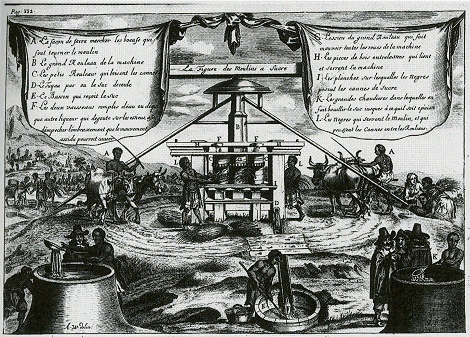 Pag. 332
La Figure des Moulins a Sucre
A. La façon de faire marcher les bœufs qui
font tourner le moulin
B. Le grand Rouleau de la machine
C. Les petis Rouleaux qui brisent les cannes
D. Le Tuyau par ou le Suc decoule
E. Le Bassin qui reçoit le Suc
F. Le deux vaisseaux remplis d'eau ou de
autre liqueur qui degoute sur les
empecher l'embrasement que le mouvement
assidu pourroit causer
G. du grand Rouleau qui fait
mouvoir toutes les roues de la machine
H. les pieces de bois qui lient
et serrent la machine
I. les planches sur lesquelles les Negres
posent les cannes de sucre
K. Les grandes Chaudieres dans lesquelles on
fait bouillir le suc jusques à
L. les Negres qui servent le Moulin, et qui
poussent les Cannes entre les Rouleaux.
A
A
D
K